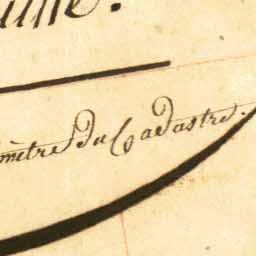 mètre du Cadastre.